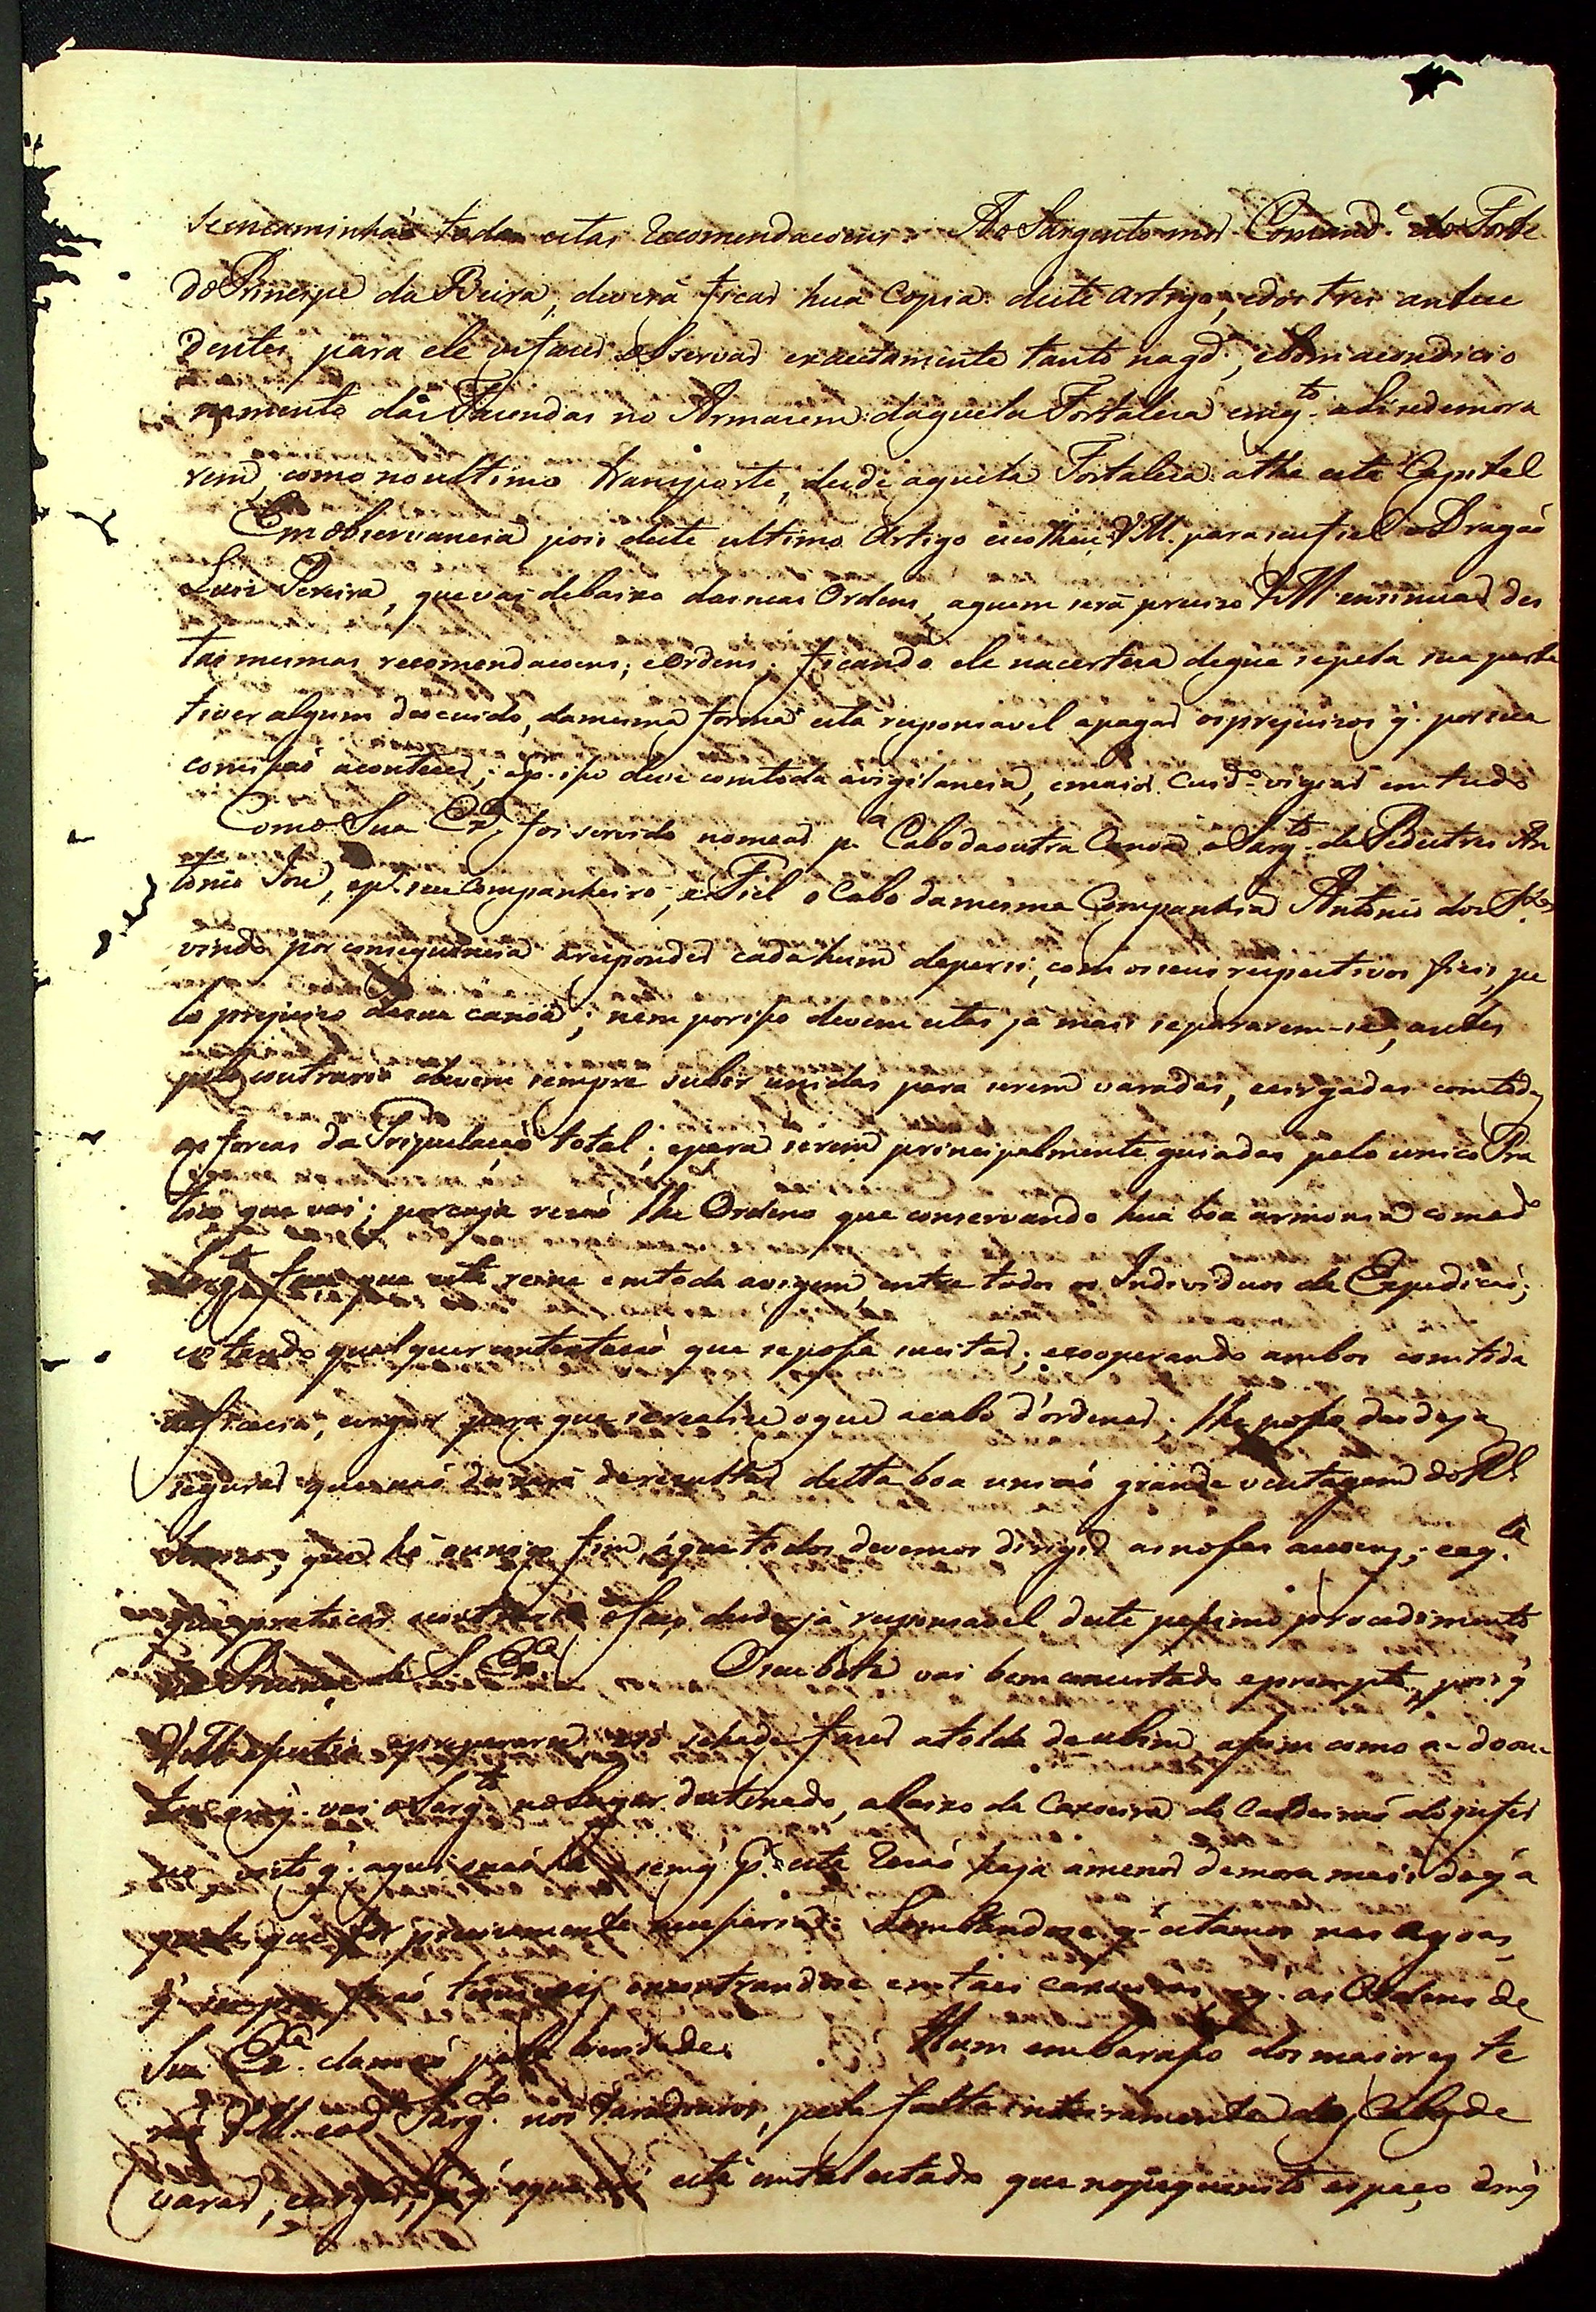 se incaminhaõ todas estas Recomendacoens. Ao Sargento mór Comand.e do Forte
do Principe da Beira, deverá ficar hua Copia deste artigo, e dos tres antece
dentes para ele os fazer observar exactamente tanto na g.da, e bom acondicio
namento das Fazendas no Armazem daquela Fortaleza emq.to ali se demora
rem, como no ultimo transporte, desde aquela Fortaleza athe esta Capital
Em observancia pois deste ultimo Artigo escolheu VM. para seu fiel o Dragaõ
Luis Pereira, que vai debaixo das suas Ordens, a quem será preciso VM ensinuar des
tas mesmas recomendacoens, e Ordens; ficando ele na certeza de que se pela sua parte
tiver algum descuido, da mesma forma está responsavel a pagar os prejuizos q. por sua
comissaõ acontecer; e p. isso deve com toda a vigilancia, e maior Cuid.o vigiar em tudo
Como Sua Ex.a foi servido nomear p.a Cabo da outra Canoa o Sarg.to de Pedestres An
tonio José, e p.a seu Companheiro, e Fiel o Cabo da mesma Companhia Antonio dos S.tos
vindo por consequencia a responder cada hum de per si, com os seus respectivos fieis, pe
lo prejuizo da sua canoa; nem por isso devem estas ja mais separarem-se, antes
pelo contrario devem sempre subir unidas para serem varadas, e sirgadas com todas
as forcas da Tripulacaõ total; e para serem principalmente guiadas pelo unico Pra
tico que vai; por cuja rezaõ lhe Ordeno que conservando hua boa armonia com o d.o
Sarg.to faça que esta reine em toda a viagem, entre todos os Individuos da Expediçaõ;
evitando qualquer contestacaõ que se possa suscitar; e cooperando ambos com toda
eficacia, e vigor para que se realize o que acabo d'ordenar; lhe posso desde ja
segurar que naõ deixará de resultar desta boa uniaõ grande ventagem do R.l
serviço, que he o unico fim, á que todos devemos dirigir as nossas accoens; e aq.le
que praticar o contrario o faço desde já responsavel deste pessimo procedimento
na Prezença de S. Ex.a O seu bote vai bem concertado e prompto, pois q
VM assistio a preparar-se só se ha de fazer a tolda de ubim, assim como a
em q. vai o Sarg.to no Lugar destinado, abaixo da Caxoeira do Caldeiraõ do
no, visto q. aqui naõ ha, e sem q. p.r esta rezaõ haja a menor demora mais do q a
parte que for precizamente necessaria. Lembrando-se q. estamos nas agoas,
q. sempre saõ temiveis encontrandose em taes caxoeiras, e q. as Ordens de
Sua Ex.a clamaõ pela brevidade. Hum embaraço dos maiores te
rá VM. e o d.o Sarg.to nos varadouros, pela falta inteiramente dos Cabos de
varar, e sirgar, está em tal estado que no pequenito espaço em q